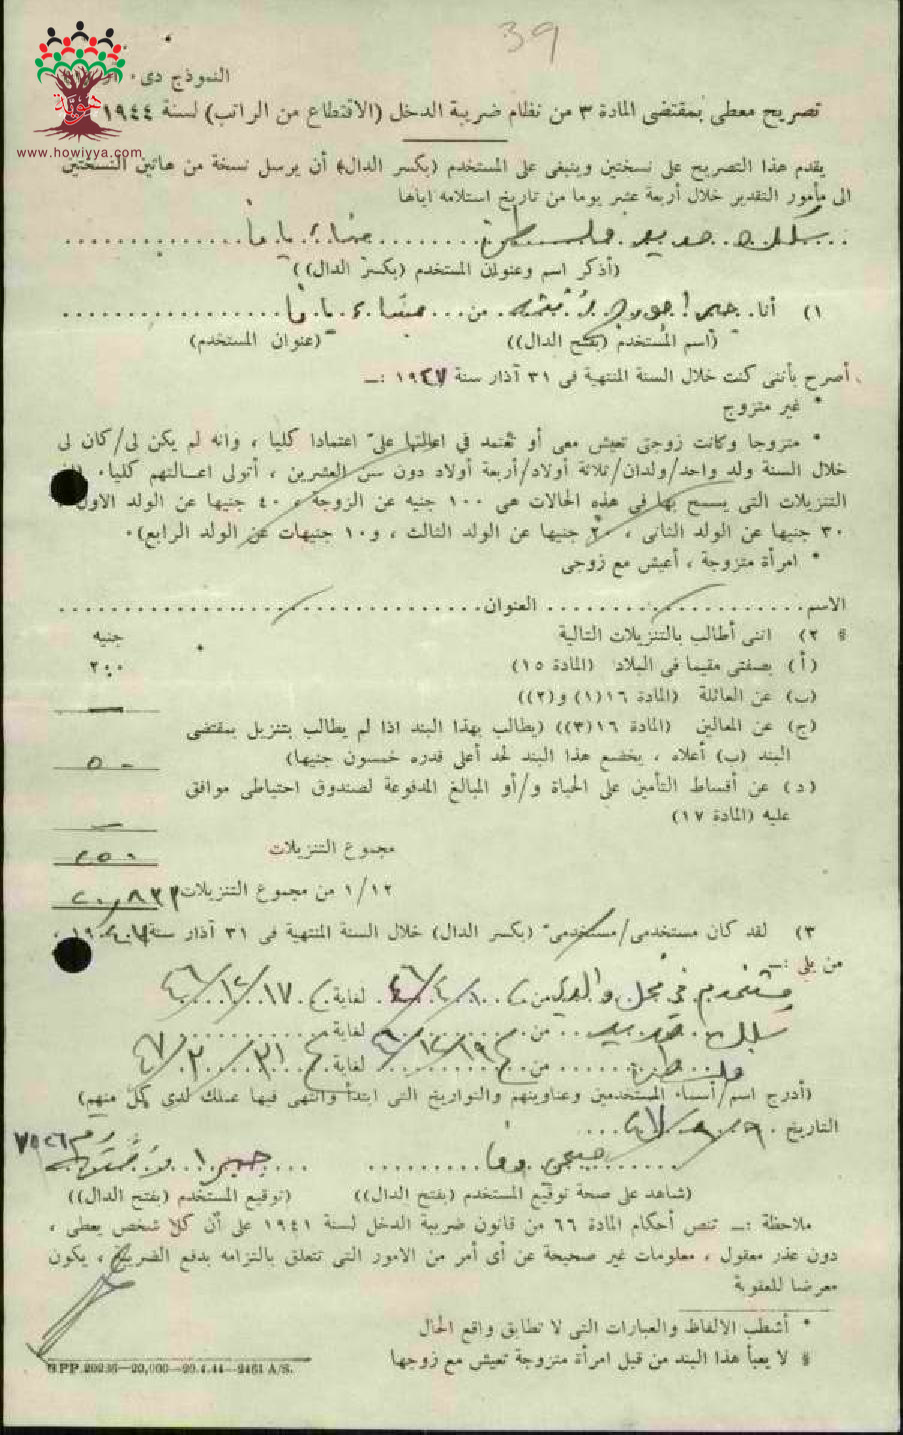 39
النموذج دى٠
تصريح معطى بمقتضى المادة ٣ من نظام ضريبة الدخل (الاقتطاع من الراتب) لسنة ١٩٤٤
هوية
www.howiyya.com
يقدم هذا التصريح على نسختين وينبغى على المستخدم (بكسر الدال) أن يرسل نسخة من هاتين النسختين
الى مأمور التقدير خلال أربعة عشر يوما من تاريخ استلامه اياها
سكك حديد فلسطين ميناء يافا
(أذكر اسم وعنوان المستخدم (بكسر الدال))
١) أنا جبرا جورج من ميناء يافا
(اسم المستخدم (بفتح الدال)) (عنوان المستخدم)
أصرح بأننى كنت خلال السنة المنتهية فى ٣١ آذار سنة ١٩٤٧ :ــ
* غير متزوج
* متزوجا وكانت زوجتى تعيش معى أو تعتمد في اعالتها علىّ اعتمادا كليا ، وانه لم يكن لى/كان لى
خلال السنة ولد واحد/ولدان/ثلاثة أولاد/أربعة أولاد دون سن العشرين ، أتولى اعالتهم كليا٠
التنزيلات التى يسمح بها في هذه الحالات هى ١٠٠ جنيه عن الزوجة ، ٤٠ جنيها عن الولد الاول ،
٣٠ جنيها عن الولد الثانى ، ٢٠ جنيها عن الولد الثالث ، و١٠ جنيهات عن الولد الرابع)٠
* امرأة متزوجة ، أعيش مع زوجى
الاسم العنوان
§ ٢) اننى أطالب بالتنزيلات التالية جنيه
(أ) بصفتى مقيما فى البلاد (المادة ١٥) ٢٠٠
(ب) عن العائلة (المادة ١٦(١) و(٢)) —
(ج) عن المعالين (المادة ١٦(٣)) (يطالب بهذا البند اذا لم يطالب بتنزيل بمقتضى
البند (ب) أعلاه ، يخضع هذا البند لحد أعلى قدره خمسون جنيها) ٥٠
(د) عن أقساط التأمين على الحياة و/أو المبالغ المدفوعة لصندوق احتياطى موافق
عليه (المادة ١٧) —
مجموع التنزيلات ٢٥٠
١/١٢ من مجموع التنزيلات ٢٠,٨٣٣
٣) لقد كان مستخدمى/مستخدمىّ (بكسر الدال) خلال السنة المنتهية فى ٣١ آذار سنة ١٩٤٧ ،
من يلى :ــ
مستخدم في محل والدي من ١/٤/٤٦ لغاية ١٧/١٢/٤٦
سكك حديد من لغاية
فلسطين من ١٩/١٢/٤٦ لغاية ٣١/٣/٤٧
(أدرج اسم/أسماء المستخدمين وعناوينهم والتواريخ التى ابتدأ وانتهى فيها عملك لدى كلّ منهم)
التاريخ
جبرا
(شاهد على صحة توقيع المستخدم (بفتح الدال)) (توقيع المستخدم (بفتح الدال))
ملاحظة :ــ تنص أحكام المادة ٦٦ من قانون ضريبة الدخل لسنة ١٩٤١ على أنّ كلا شخص يعطى ،
دون عذر معقول ، معلومات غير صحيحة عن أى أمر من الامور التى تتعلق بالتزامه بدفع الضريبة ، يكون
معرضا للعقوبة
* أشطب الالفاظ والعبارات التى لا تطابق واقع الحال
§ لا يعبأ هذا البند من قبل امرأة متزوجة تعيش مع زوجها
GPP.20236—20,000—20.4.44—2461 A/S.